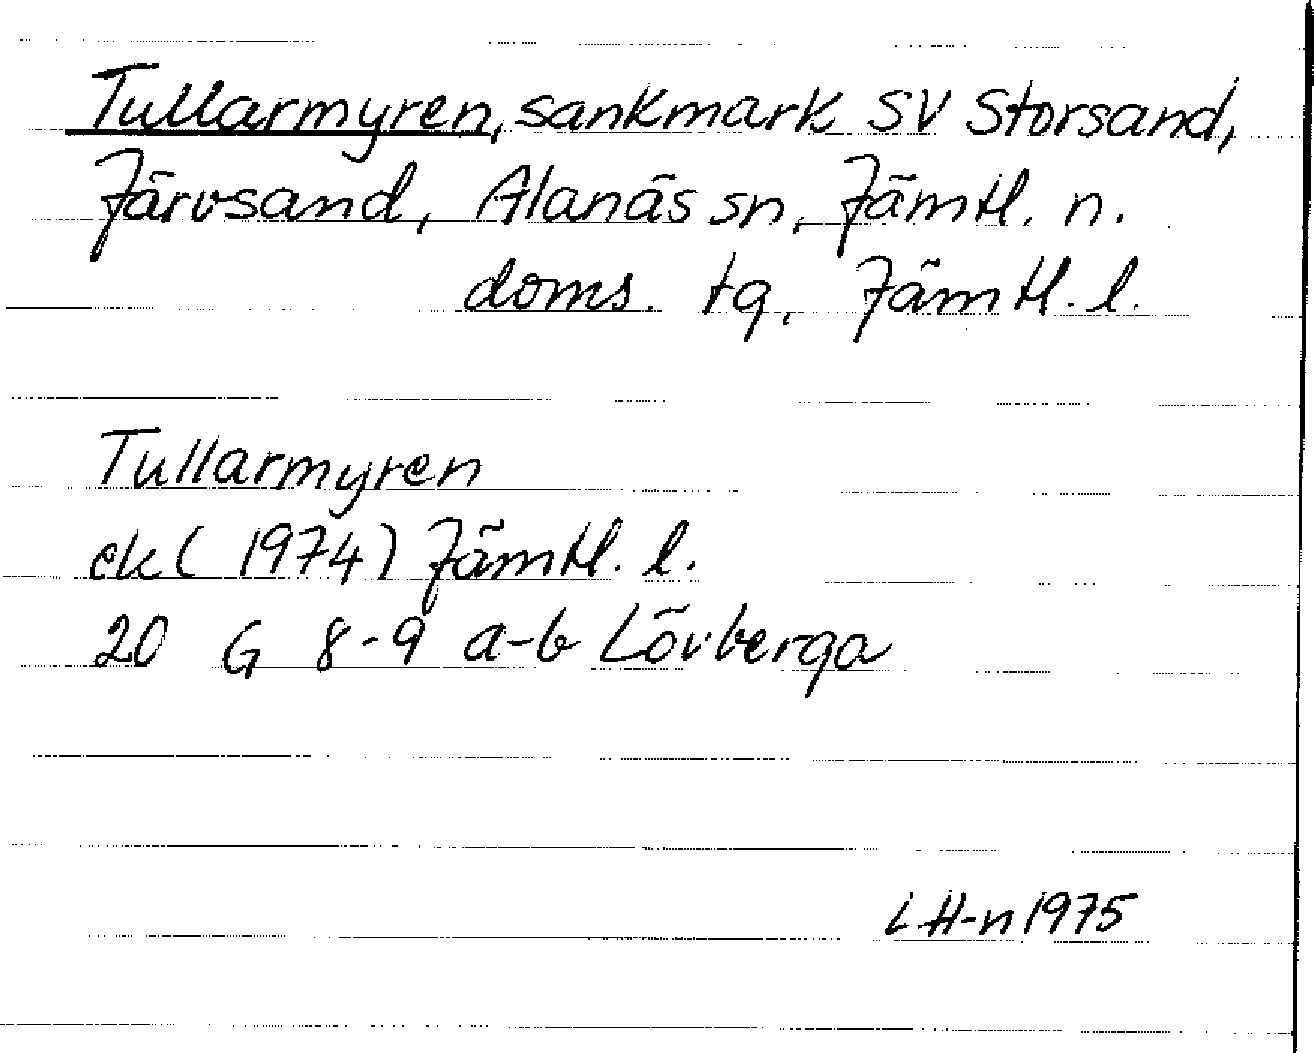 Tullarmyren, sankmark SV Storsand,
Järvsand, Alanäs sn, Jämtl. n.
doms. tg, Jämtl. l.
Tullarmyren
ek (1974) Jämtl. l.
20 G 8-9 a-b Lövberga
L H-n 1975